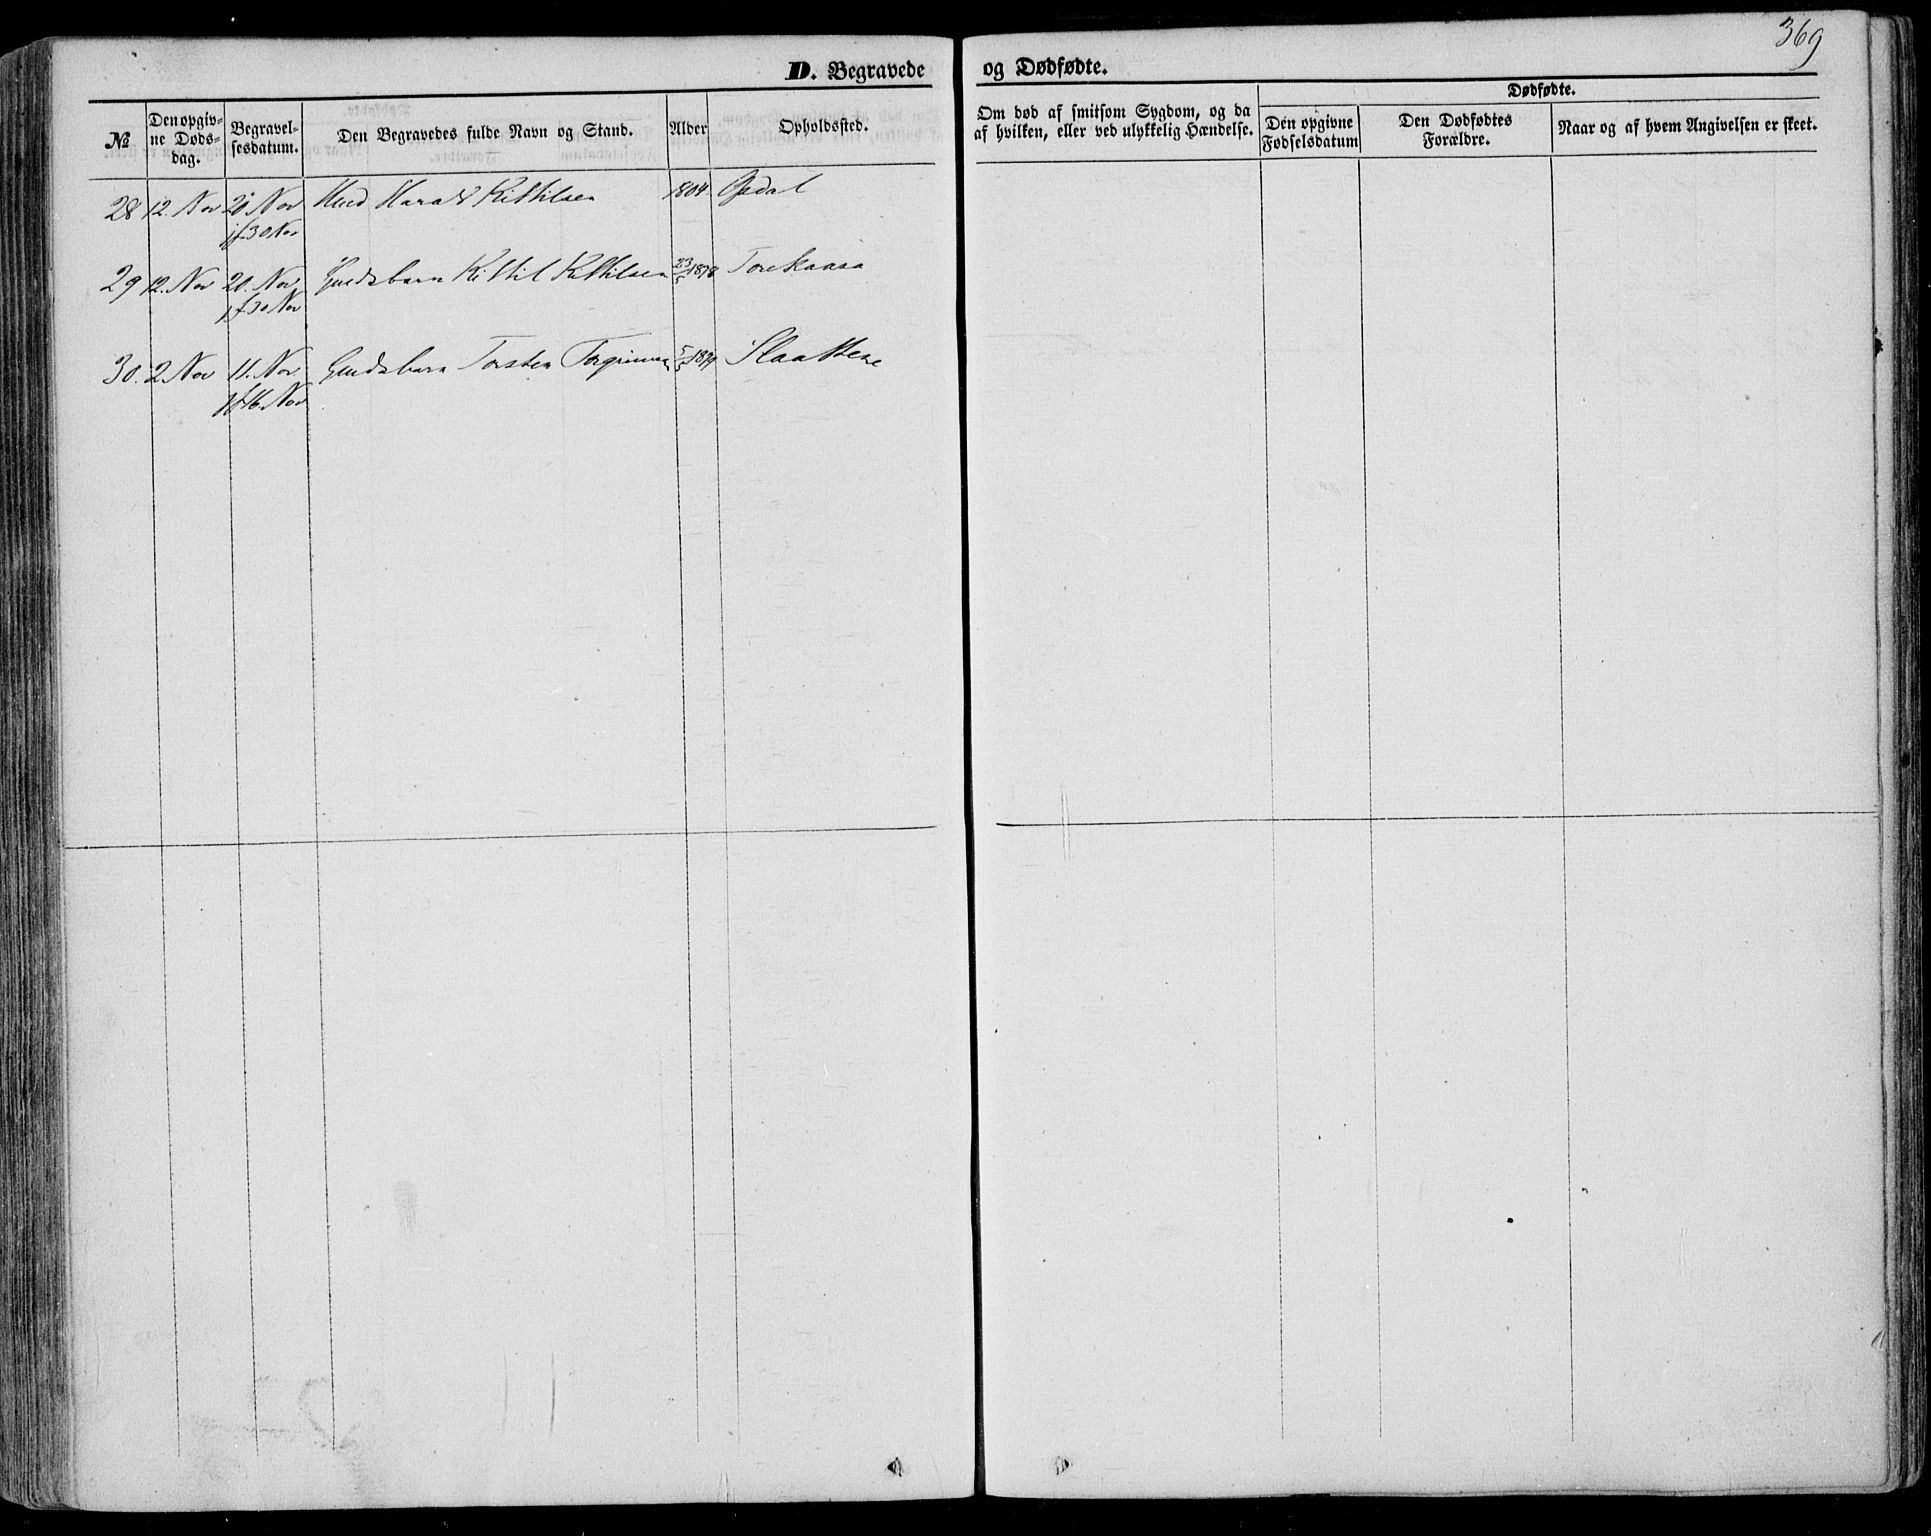 369
D. Begravede og Dødfødte.
№
Den opgiv-
ne Døds-
dag.
Begravel-
sesdatum.
Den Begravedes fulde Navn og Stand.
Alder
Opholdssted.
Om død af smitsom Sygdom, og da
af hvilken, eller ved ulykkelig Hændelse.
Dødfødte.
Den opgivne
Fødselsdatum
Den Dødfødtes
Forældre.
Naar og af hvem Angivelsen er skeet.
28 12. Nov 20. Nov Harald Kittilsen 1804 Opdal
jf 30 Nov
29 12. Nov 20. Nov Gmdsbarn Kittil Kittilsen 23/5 1878 Torekaasa
jf 30 Nov
30. 2 Nov 11. Nov Gmdsbarn Torsten Torgrimsen 5/5 1879 Slaattene
jf 16 Nov